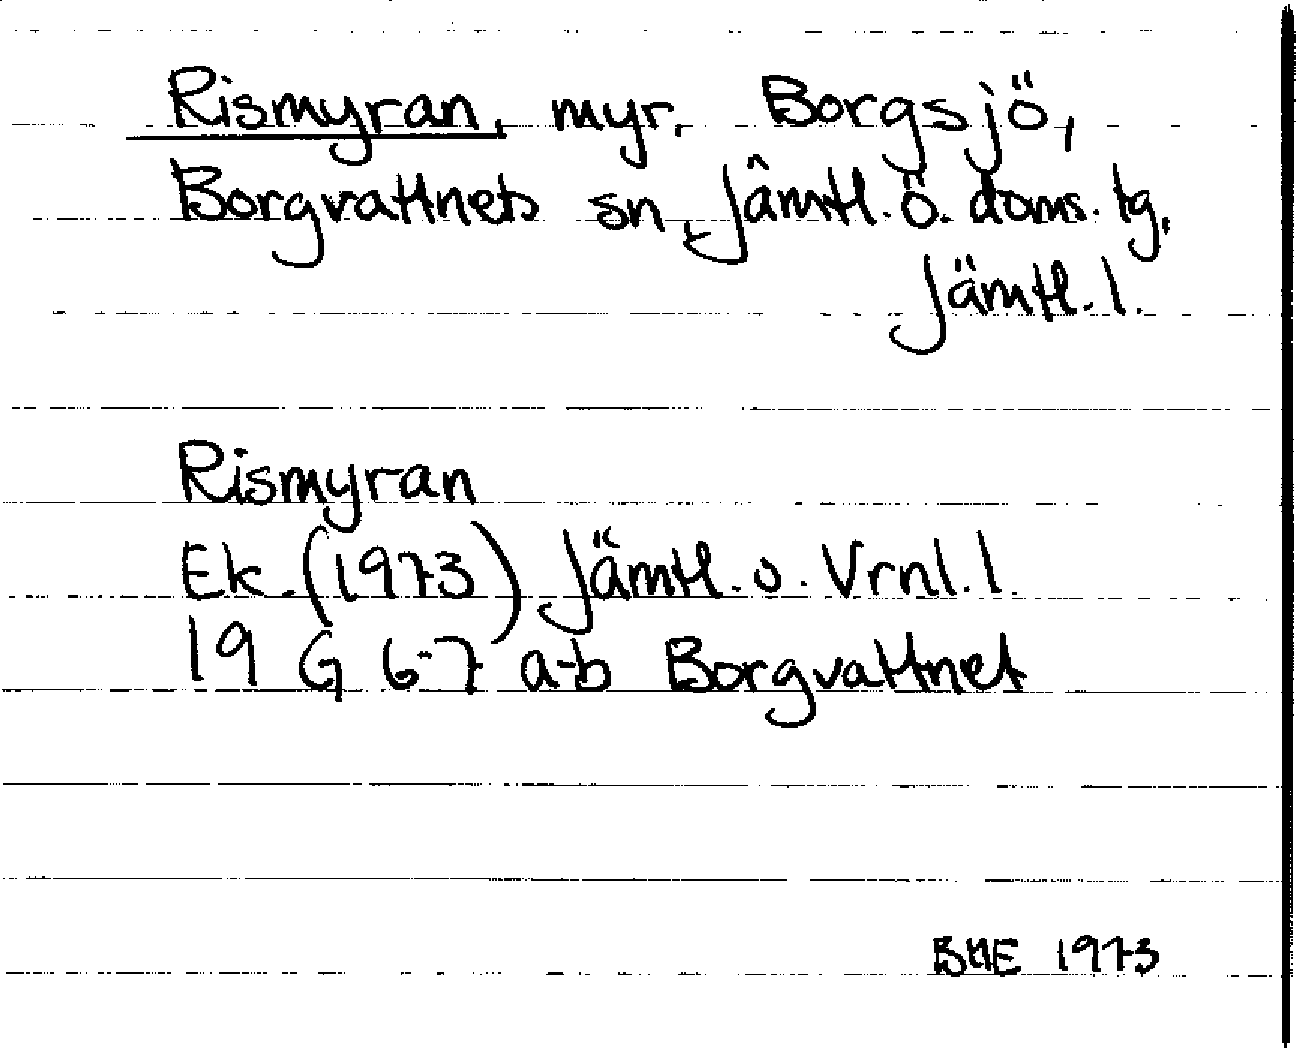 Rismyran, myr, Borgsjö,
Borgvattnets sn, Jämtl. ö. doms. tg,
Jämtl. l.
Rismyran
Ek. (1973) Jämtl. o. Vrnl. l.
19 G 6-7 a-b Borgvattnet
1973